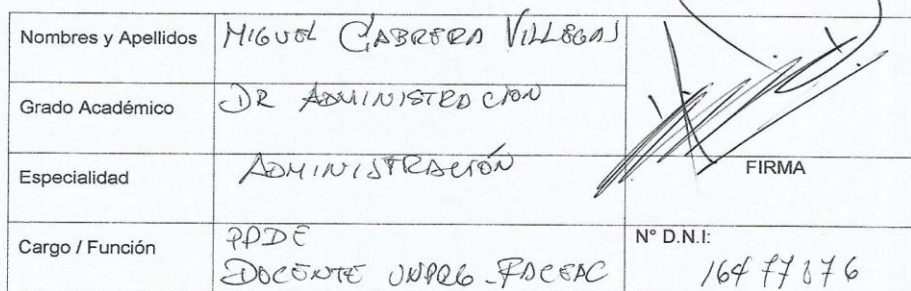 Nombres y Apellidos MIGUEL CABRERA VILLEGAS
Grado Académico DR ADMINISTRACION
Especialidad ADMINISTRACIÓN
FIRMA
Cargo / Función PPDE
DOCENTE UNPRG - FACEAC
N° D.N.I: